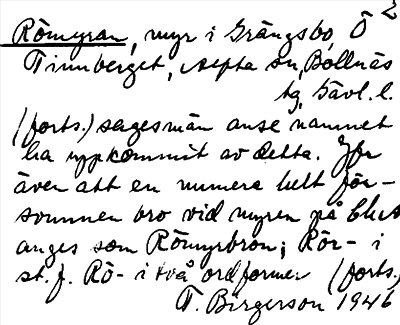 2
Römyran, myr i Grängsbo, Ö
Tinnberget, Alfta sn, Bollnäs
tg, Gävl. l.
(forts.) sagesmän anse namnet
ha uppkommit av detta. Jfr
även att en numera helt för-
svunnen bro vid myren på
anges som Römyrbron; Rör- i
st. f. Rö- i två ordformer (forts.)
T. Birgerson 1946